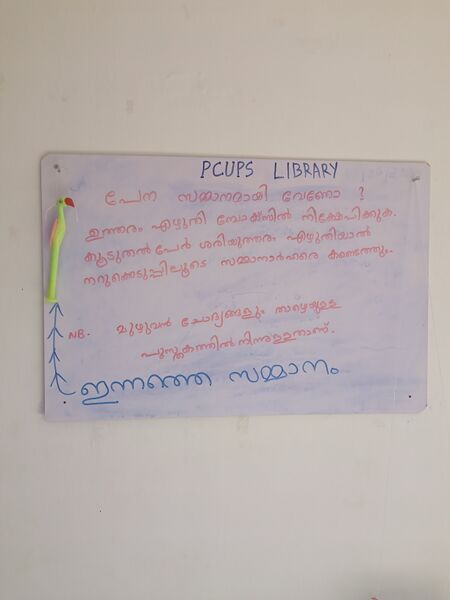 PCUPS LIBRARY
പേന സമ്മാനമായി വേണോ ?
ഉത്തരം എഴുതി ബോക്സിൽ നിക്ഷേപിക്കുക.
കൂടുതൽ പേർ ശരിയുത്തരം എഴുതിയാൽ
നറുക്കെടുപ്പിലൂടെ സമ്മാനാർഹരെ കണ്ടെത്തും.
NB. മുഴുവൻ ചോദ്യങ്ങളും താഴെയുള്ള
പുസ്തകത്തിൽ നിന്നുള്ളതാണ്.
ഇന്നത്തെ സമ്മാനം